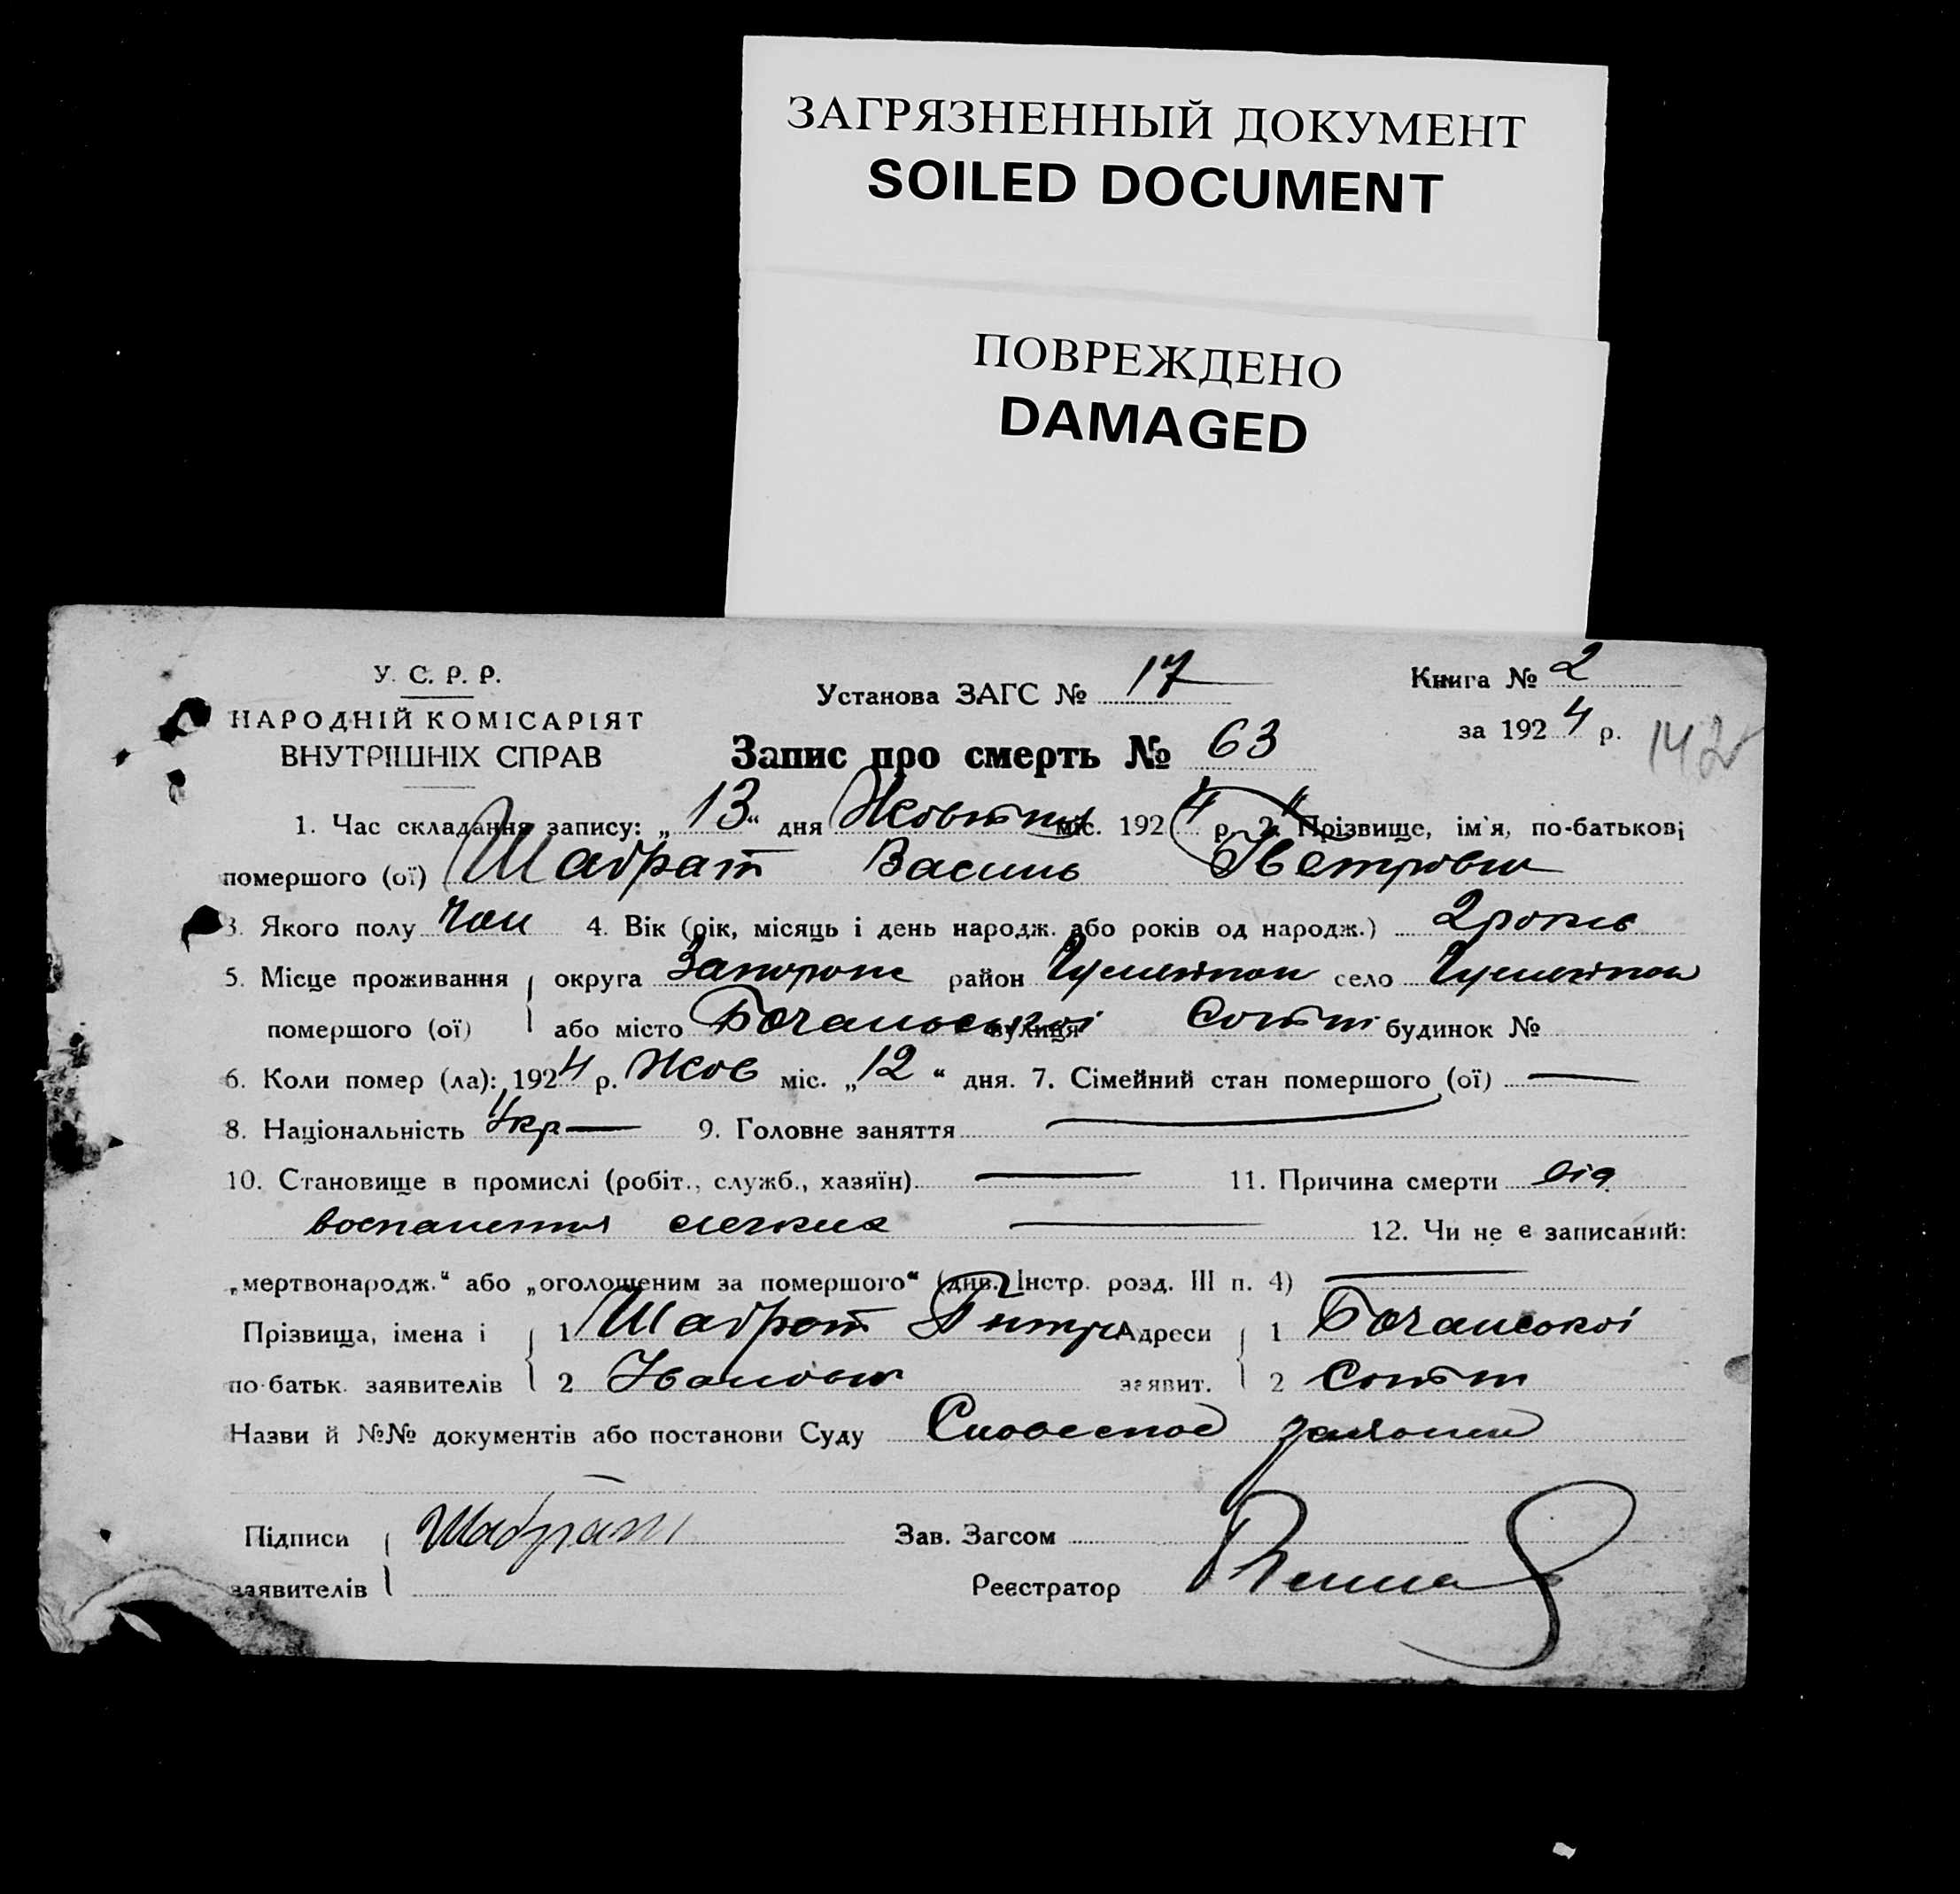 ЗАГРЯЗНЕННЫЙ ДОКУМЕНТ
SOILED DOCUMENT
ПОВРЕЖДЕНО
DAMAGED
У. С. Р. Р.
НАРОДНІЙ КОМІСАРІЯТ
ВНУТРІШНІХ СПРАВ
Установа ЗАГС № 17
Книга № 2
за 1924 р.
142
Запис про смерть № 63
1. Час складання запису: „13“ дня Жовтня міс. 1924 р. 2. Прізвище, ім'я, по-батькові
помершого (ої) Шабрат Василь Петрович
3. Якого полу Чол 4. Вік (рік, місяць і день народж. або років од народж.) 2 років
5. Місце проживання округа Запорож район село
помершого (ої) або місто вулиця будинок №
6. Коли помер (ла): 1924 р. Жов міс. „12“ дня. 7. Сімейний стан помершого (ої) —
8. Національність Укр— 9. Головне заняття —
10. Становище в промислі (робіт., служб., хазяїн) — 11. Причина смерти від
воспалення легких — 12. Чи не є записаний:
„мертвонародж.“ або „оголошеним за помершого“ (див. Інстр. розд. III п. 4) —
Прізвища, імена і 1 Шабрат Адреси 1
по-батьк. заявителів 2 Іванович заявит. 2
Назви й №№ документів або постанови Суду Словесное
Підписи Шабрат Зав. Загсом
заявителів Реєстратор